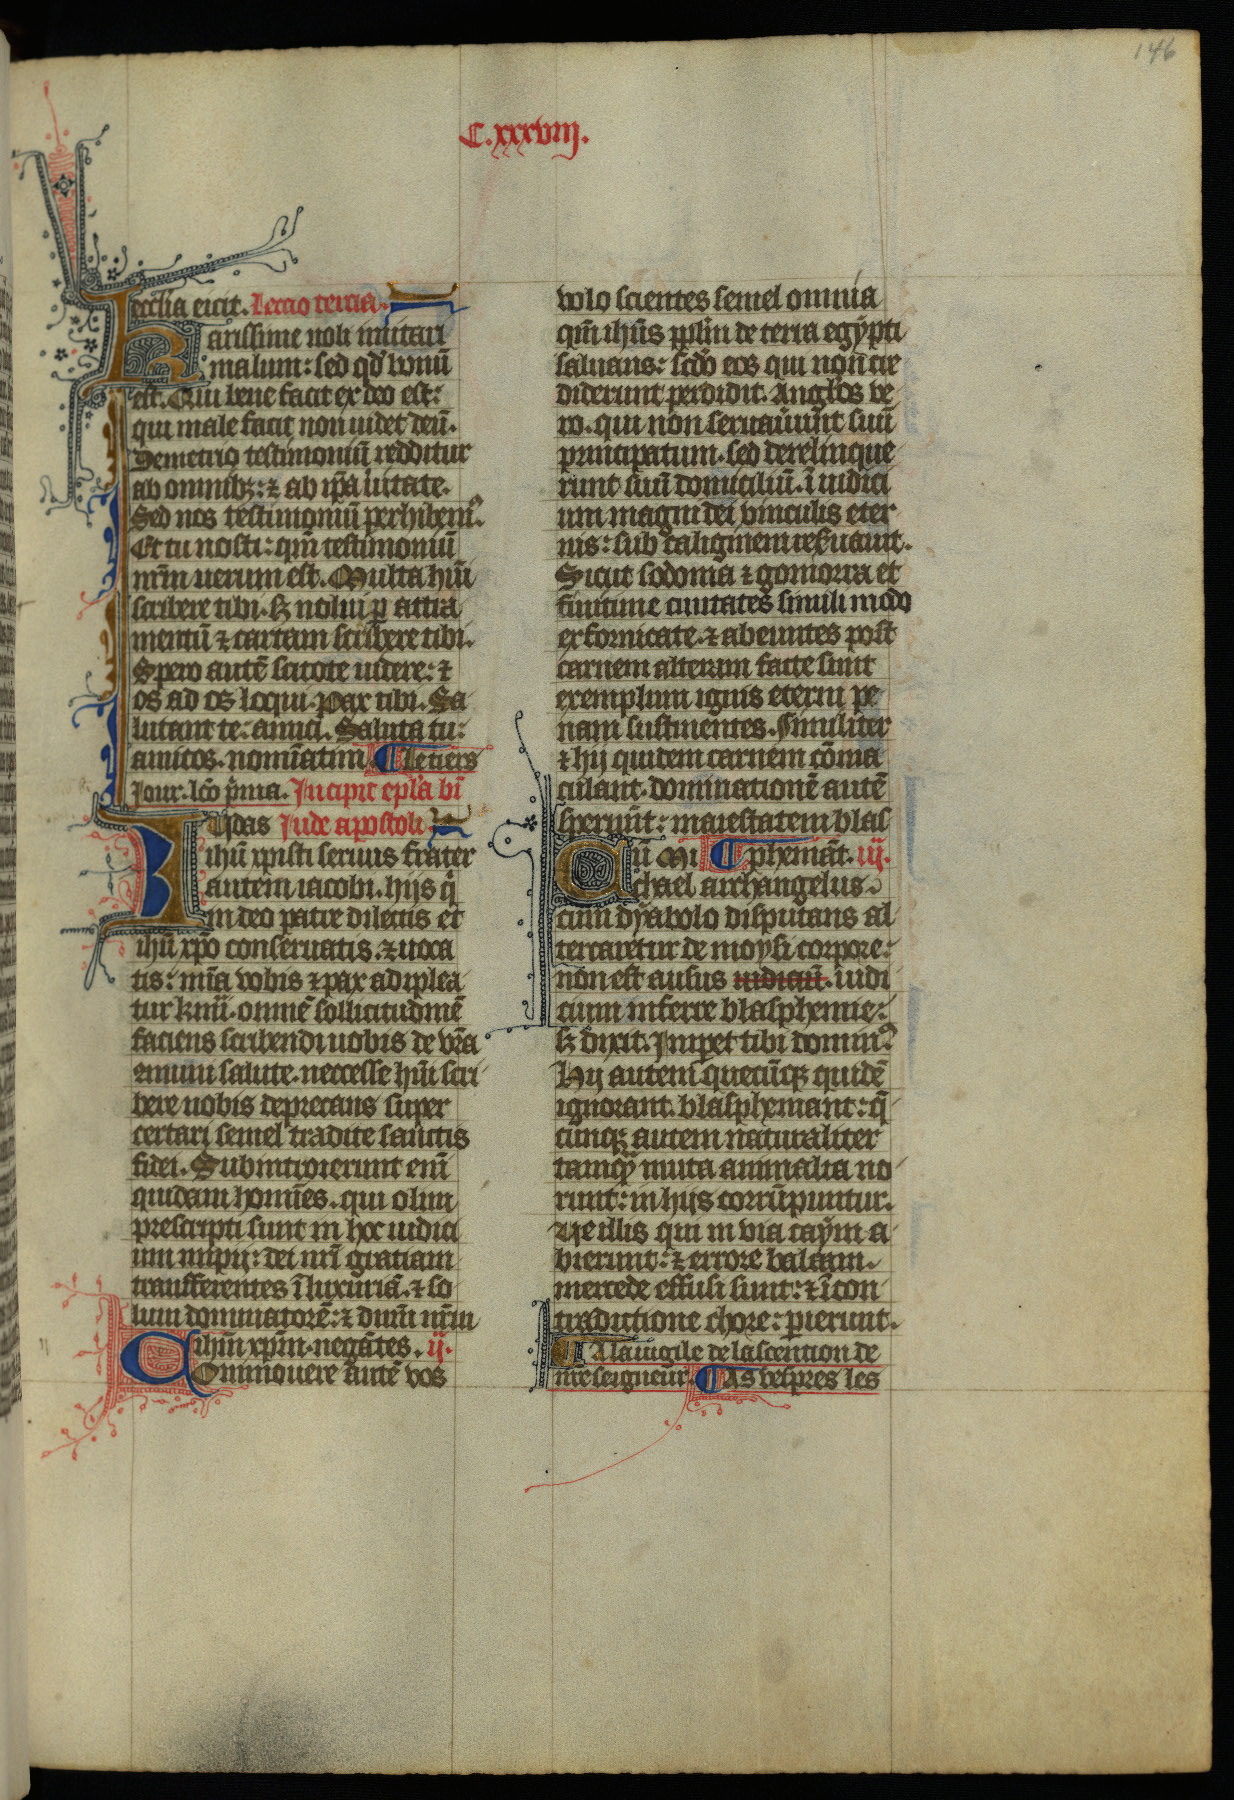 146
C.xxxviij.
ecclīa eicit. Leccio tercia.
Karissime noli mitari
malum: sed qd̕ bonū
est. Qui bene facit ex deo est:
qui male facit non uidet deū.
Demetrio testimoniū redditur
ab omnibꝫ: ⁊ ab ip̄a ūitate.
Sed nos testimoniū perhibemꝰ.
Et tu nosti: qm̄ testimoniū
nr̄m uerum est. Multa hūi
scribere tibi. sꝫ nolui ꝑ attra
mentū ⁊ cartam scribere tibi.
Spero autē scitote uidere: ⁊
os ad os loqui. Pax tibi. Sa
lutant te: amici. Saluta tu:
amicos. nomīatim. ¶ Le tiers
Jour. lcō p̄ma. Incipit epl̄a bī
Iudas Jude apostoli.
ihū xp̄isti seruus frater
autem iacobi. hijs q̄
in deo patre dilectis et
ihū xp̄o conseruatis. ⁊ uoca
tis: mīa vobis ⁊ pax adiplea
tur kmī. omnē sollicitudinē
faciens scribendi uobis de vr̄a
omnium salute. neccesse hūi scri
bere uobis deprecans super
certari semel tradite sanctis
fidei. Subintroierunt enī
quidam homīes. qui olim
prescripti sunt in hoc iudici
um impij: dei nrī gratiam
transferentes ī luxuriā. ⁊ so
lum dominatorē: ⁊ dnm̄ nr̄m
ihm̄ xpm̄. negātes. ij.
Commouere autē vos
volo scientes semel omnia
qm̄ ihūs ppl̄m de terra egypti
saluans: scdo eos qui non cre
diderunt perdidit. Anglos ve
ro. qui non seruauerūt suū
principatum. sed derelinque
runt suū domiciliū. ī iudici
um magni dei vinculis eter
nis: sub caliginem reseruauit.
Sicut sodoma ⁊ gomorra et
finitime ciuitates simili modo
exfornicate. ⁊ abeuntes post
carnem alteram facte sunt
exemplum ignis eterni pe
nam sustinentes. Similiter
⁊ hij quidem carnem cōma
culant. dominationē autē
spernūt: maiestatem blas
Cū Mi ¶ phemāt. iij.
chael archangelus.
cum dyabolo disputans al
tercaretur de moysi corpore:
non est ausus iudiciū. iudi
cium inferre blasphemie:
sꝫ dixit. Jmpet tibi dominꝰ.
Hij autem quecūqꝫ quidē
ignorant. blasphemant: q̄
cūnqꝫ autem naturaliter
tamqȝ muta animalia no
runt: in hijs corrūpuntur.
Ve illis qui in via caym a
bierunt: ⁊ errore balaam.
mercede effusi sunt: ⁊ ī con
tradictione chore: ꝑierunt.
¶ A la uigile de lascention de
nr̄e seigneur. ¶ As vespres les